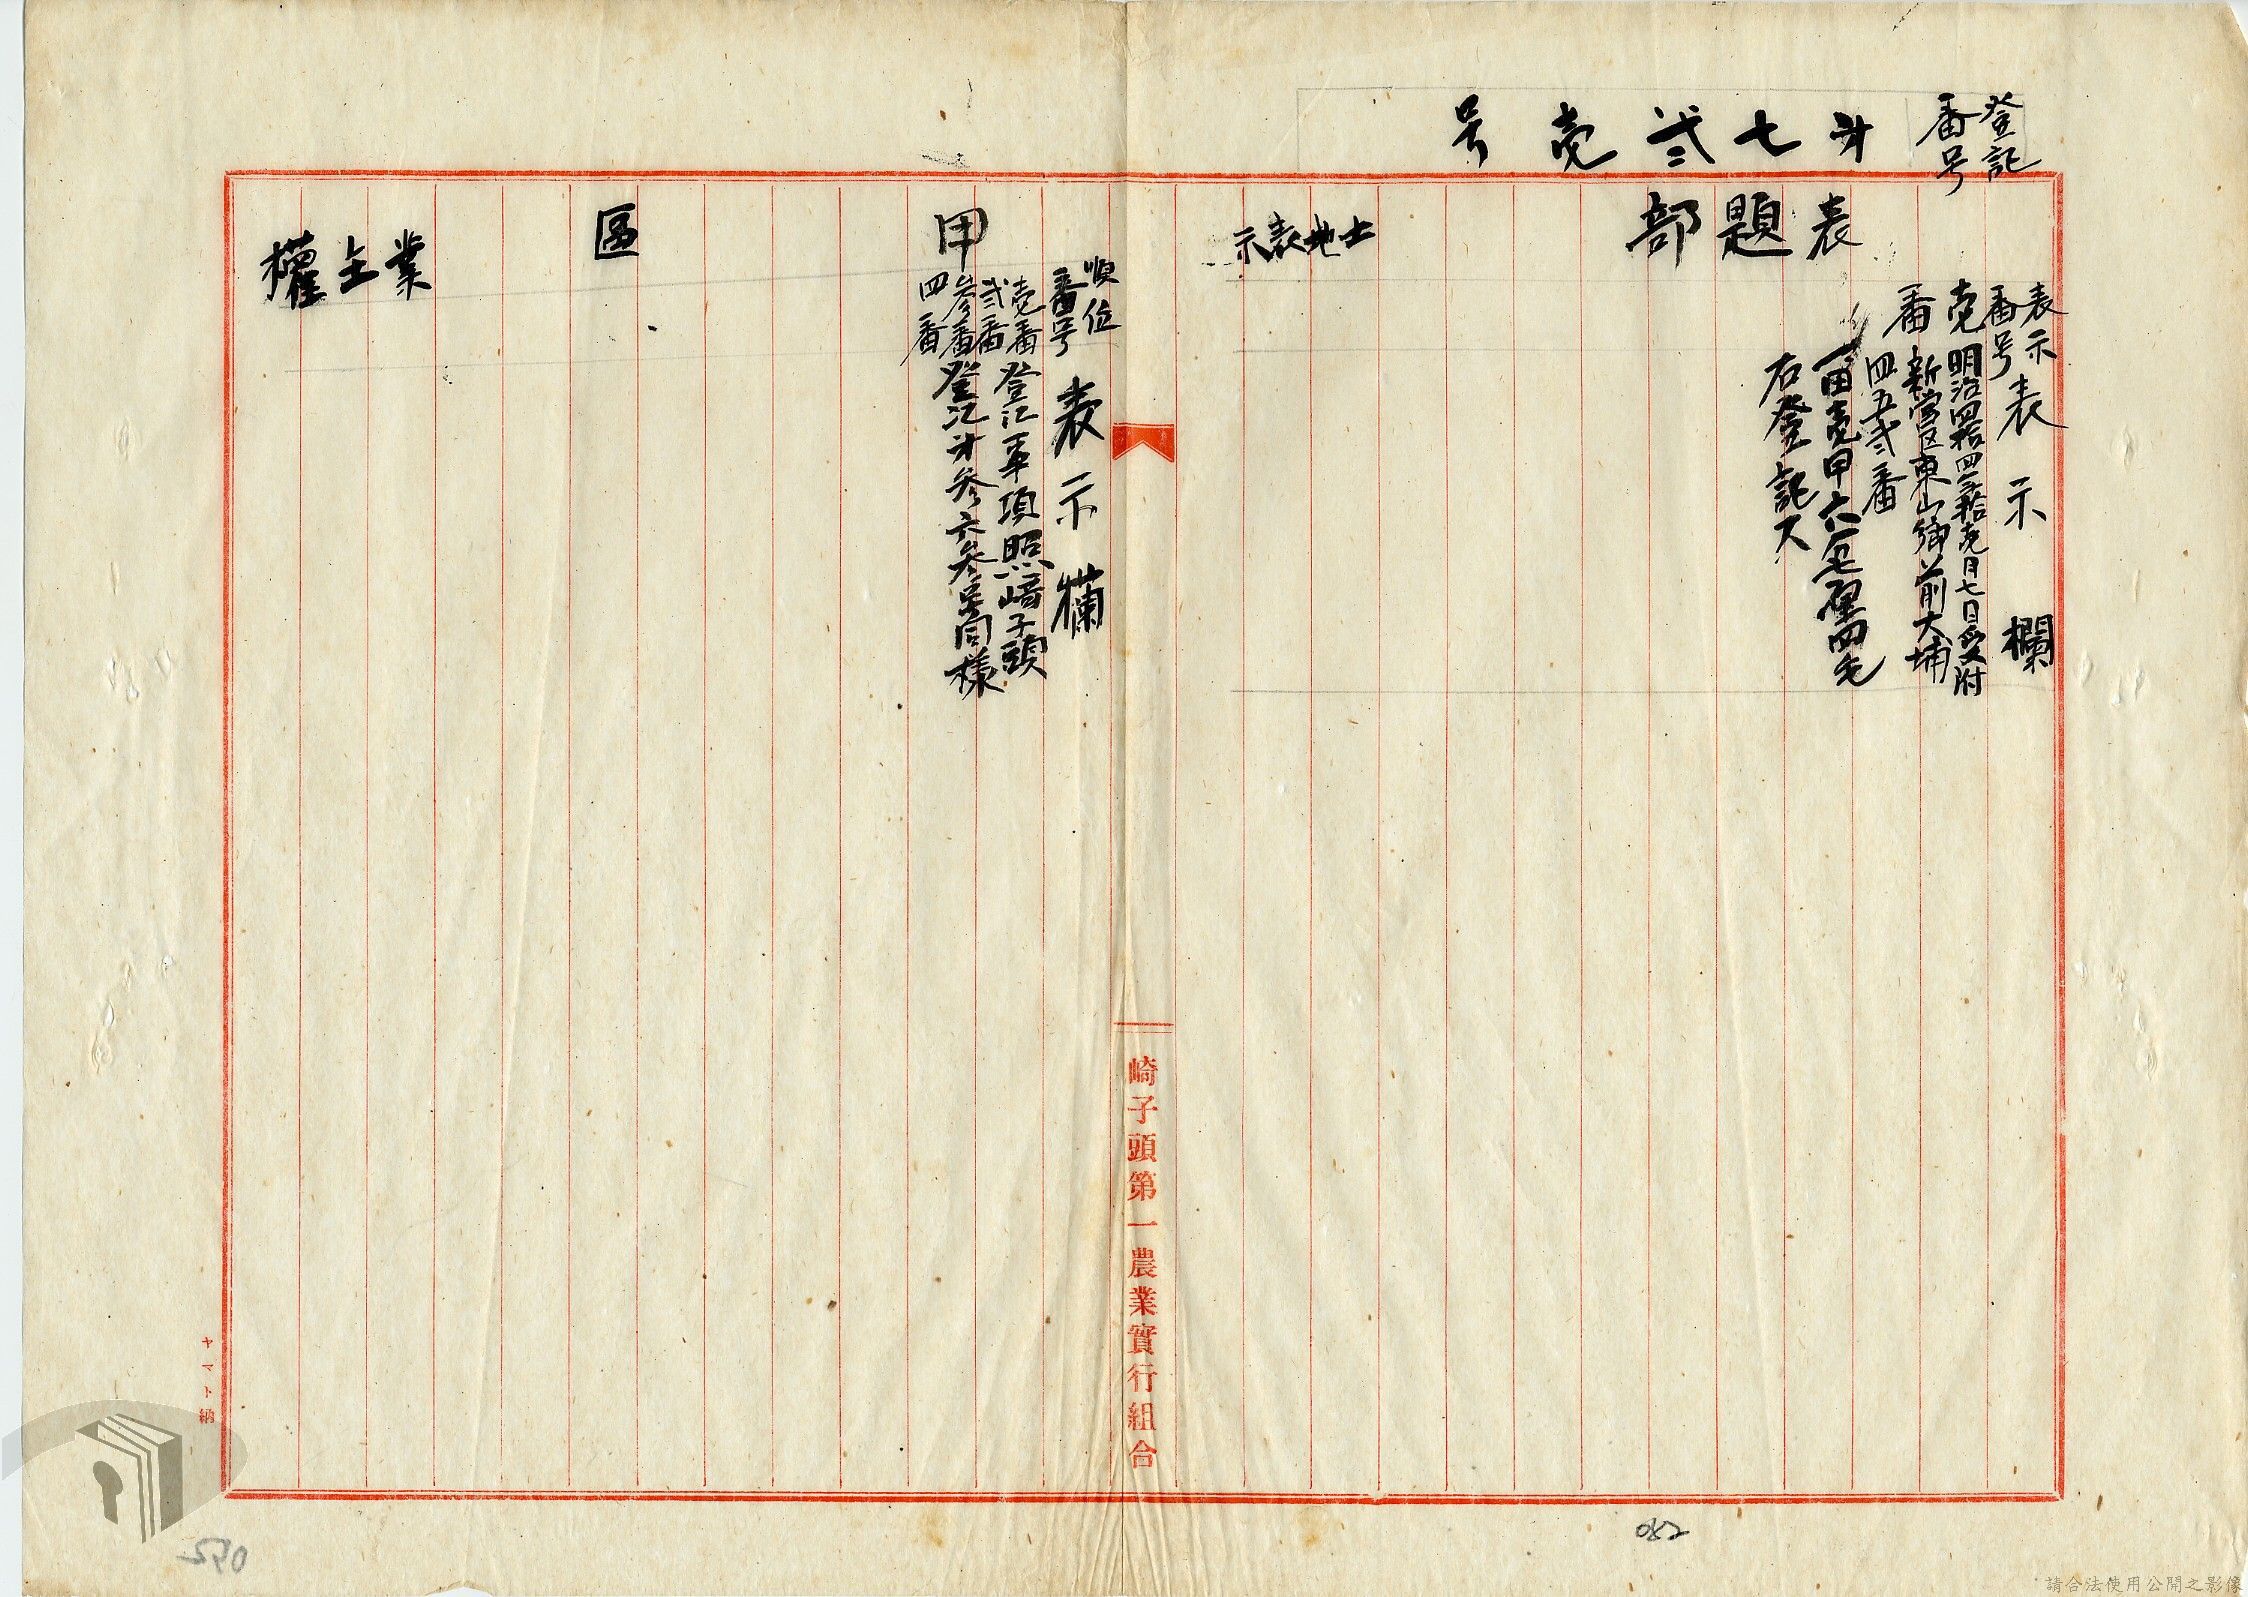 登記
番号
才七弍壱号
表題部
表示
番号
表示欄
壱
番
明治四拾四年拾壱月七日受附
新営区東山御前大埔
四五弍番
一田壱甲六分七厘四毛
右登記ス
土地表示
崎子頭第一農業實行組合
順位
番号
表示欄
甲
區
業主權
壱番
弍番
参番
四番
登记事項照崎子頭
登记才参六参号同様
ヤマト納
082
052
請合法使用公開之影像